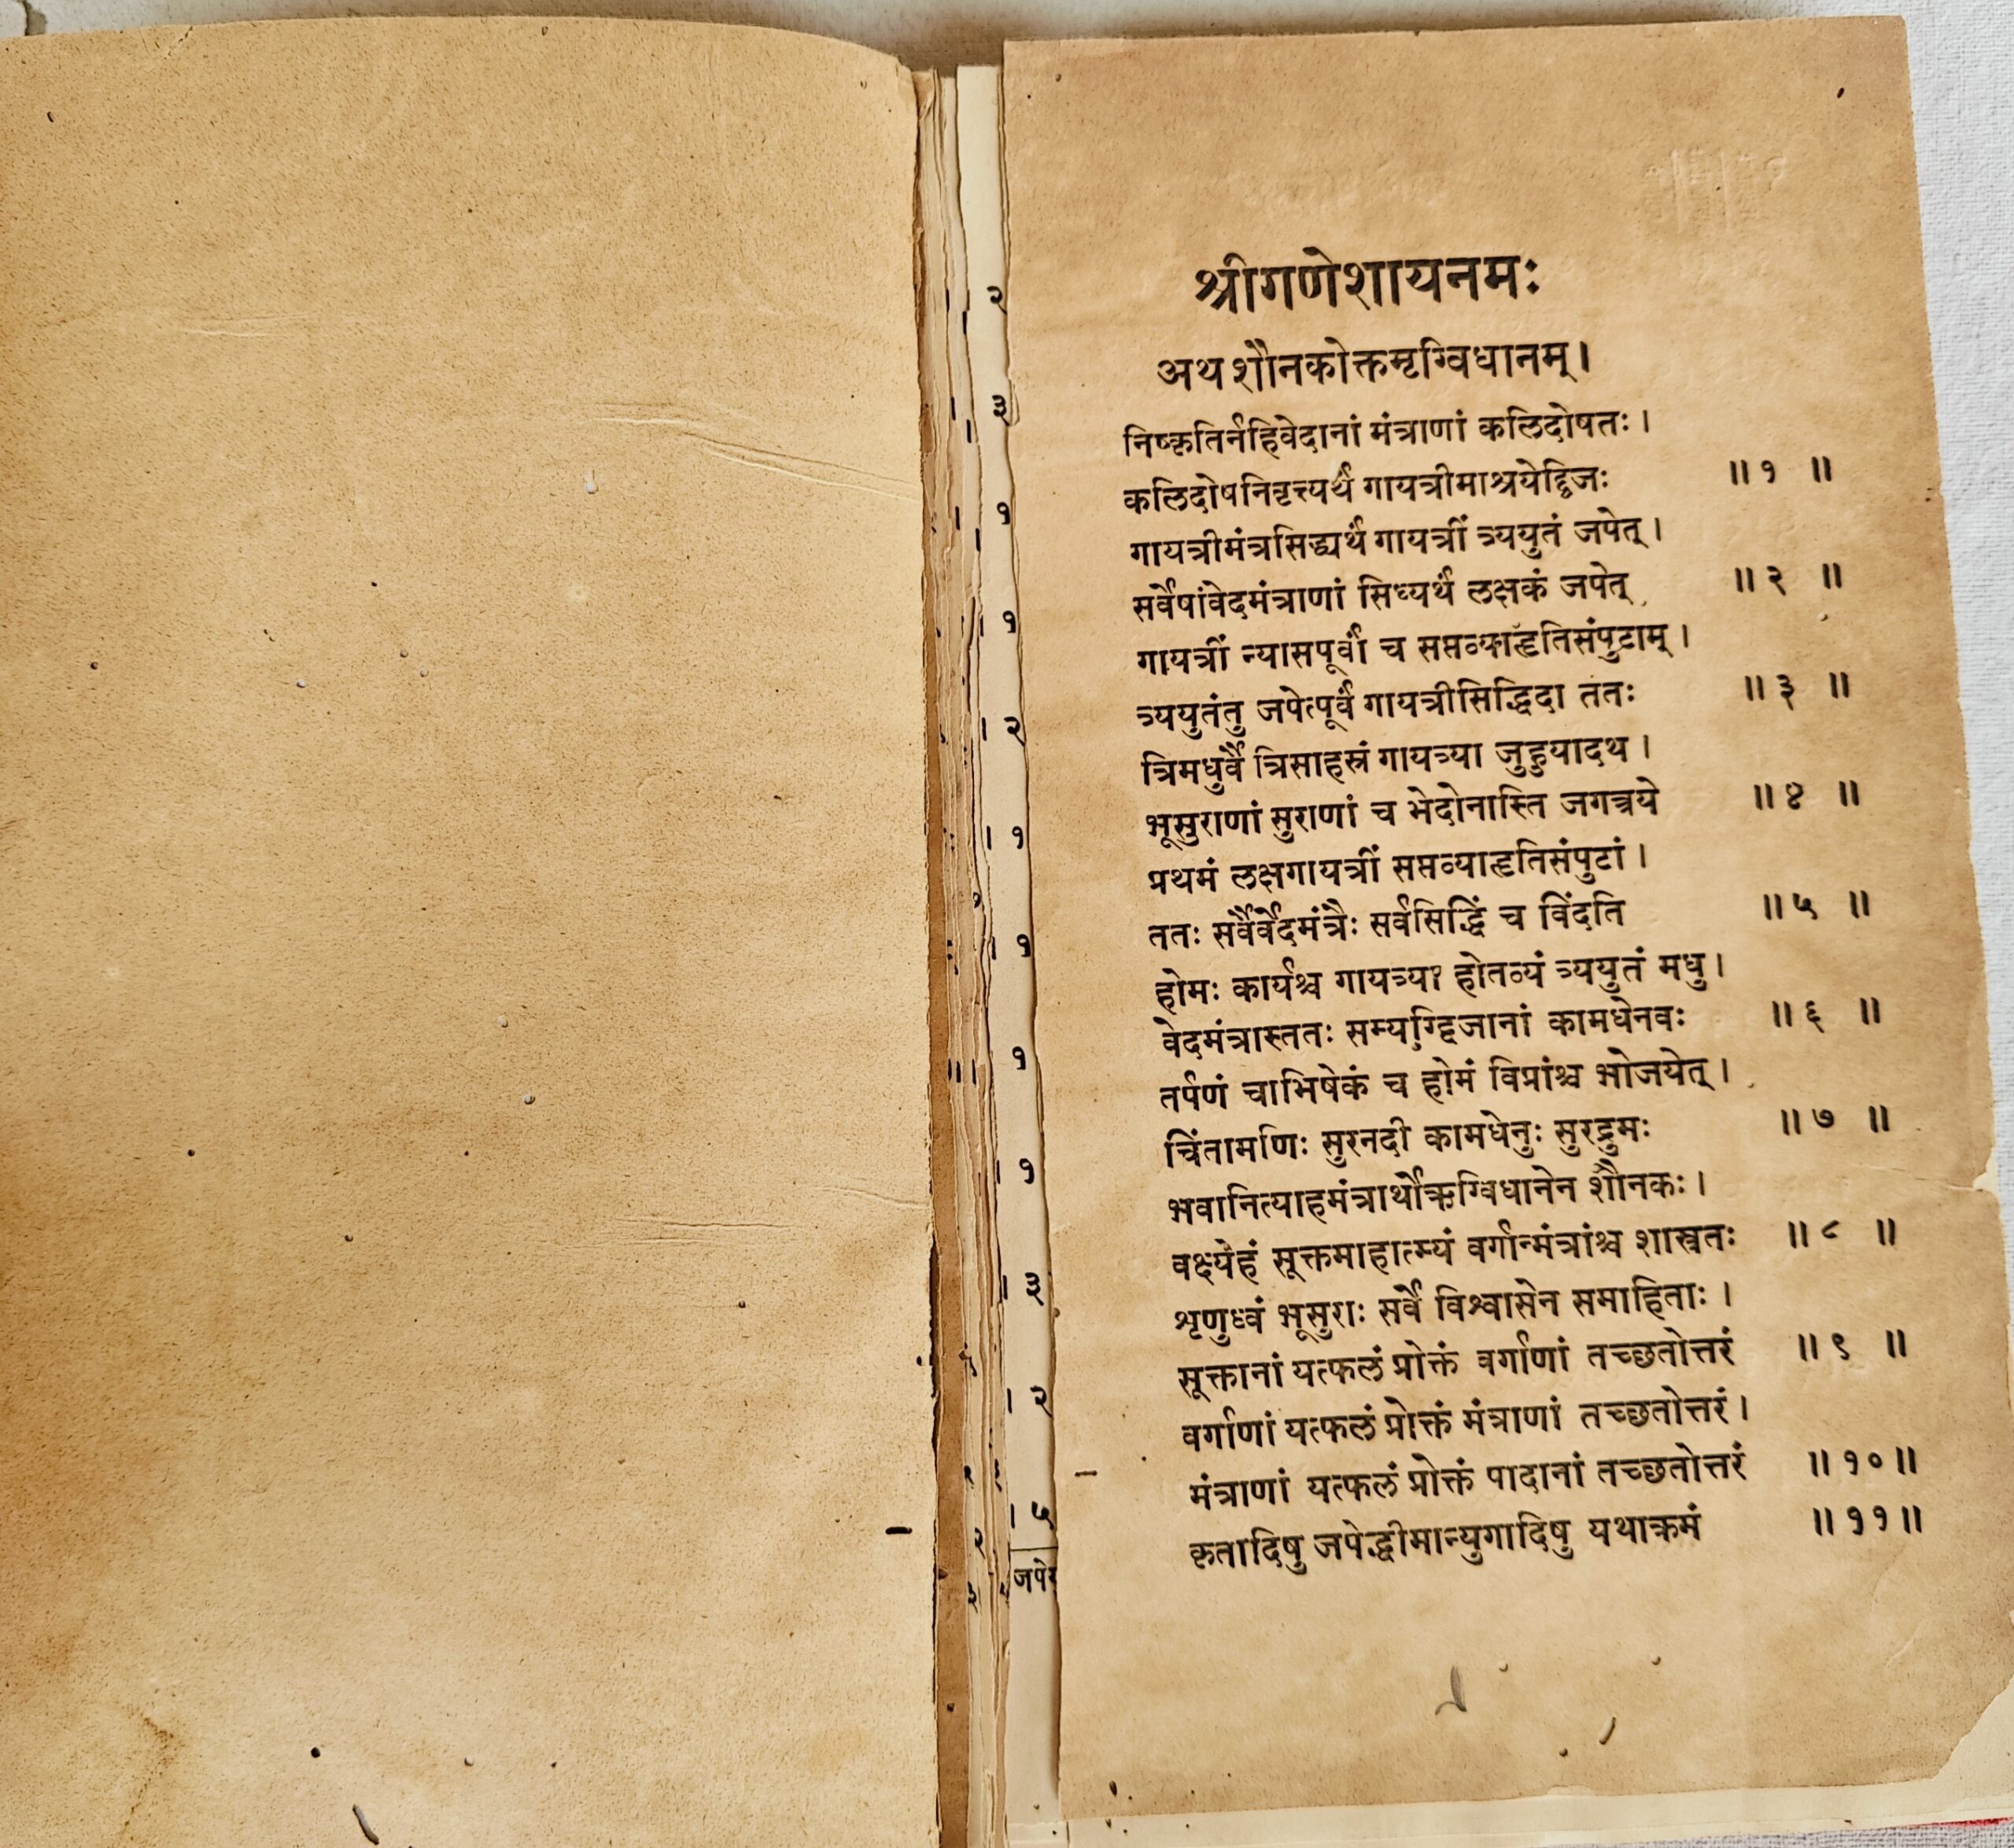 २
३
१
१
२
१
१
१
१
३
२
५
श्रीगणेशायनमः
अथ शौनकोक्तमृग्विधानम्।
निष्कृतिर्नहिवेदानां मंत्राणां कलिदोषतः।
कलिदोषनिवृत्त्यर्थं गायत्रीमाश्रयेद्द्विजः ॥ १ ॥
गायत्रीमंत्रसिद्ध्यर्थं गायत्रीं त्र्ययुतं जपेत्।
सर्वेषांवेदमंत्राणां सिध्यर्थं लक्षकं जपेत् ॥ २ ॥
गायत्रीं न्यासपूर्वां च सप्तव्याहृतिसंपुटाम्।
त्र्ययुतंतु जपेत्पूर्वं गायत्रीसिद्धिदा ततः ॥ ३ ॥
त्रिमधुर्वै त्रिसाहस्रं गायत्र्या जुहुयादथ।
भूसुराणां सुराणां च भेदोनास्ति जगत्रये ॥ ४ ॥
प्रथमं लक्षगायत्रीं सप्तव्याहृतिसंपुटां।
ततः सर्वैर्वेदमंत्रैः सर्वसिद्धिं च विंदति ॥ ५ ॥
होमः कार्यश्च गायत्र्या होतव्यं त्र्ययुतं मधु।
वेदमंत्रास्ततः सम्यग्द्विजानां कामधेनवः ॥ ६ ॥
तर्पणं चाभिषेकं च होमं विप्रांश्च भोजयेत्।
चिंतामणिः सुरनदी कामधेनुः सुरद्रुमः ॥ ७ ॥
भवानित्याहमंत्रार्थोऋग्विधानेन शौनकः।
वक्ष्येहं सूक्तमाहात्म्यं वर्गान्मंत्रांश्च शास्त्रतः ॥ ८ ॥
शृणुध्वं भूसुराः सर्वे विश्वासेन समाहिताः।
सूक्तानां यत्फलं प्रोक्तं वर्गाणां तच्छतोत्तरं ॥ ९ ॥
वर्गाणां यत्फलं प्रोक्तं मंत्राणां तच्छतोत्तरं।
मंत्राणां यत्फलं प्रोक्तं पादानां तच्छतोत्तरं ॥ १० ॥
कृतादिषु जपेद्धीमान्युगादिषु यथाक्रमं ॥ ११ ॥